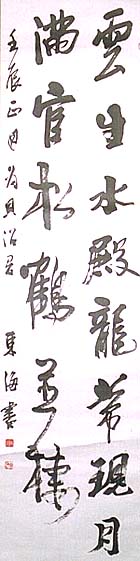 雲生水殿龍常現月
滿官松鶴並棲
壬辰正月為貝沼君 東海書